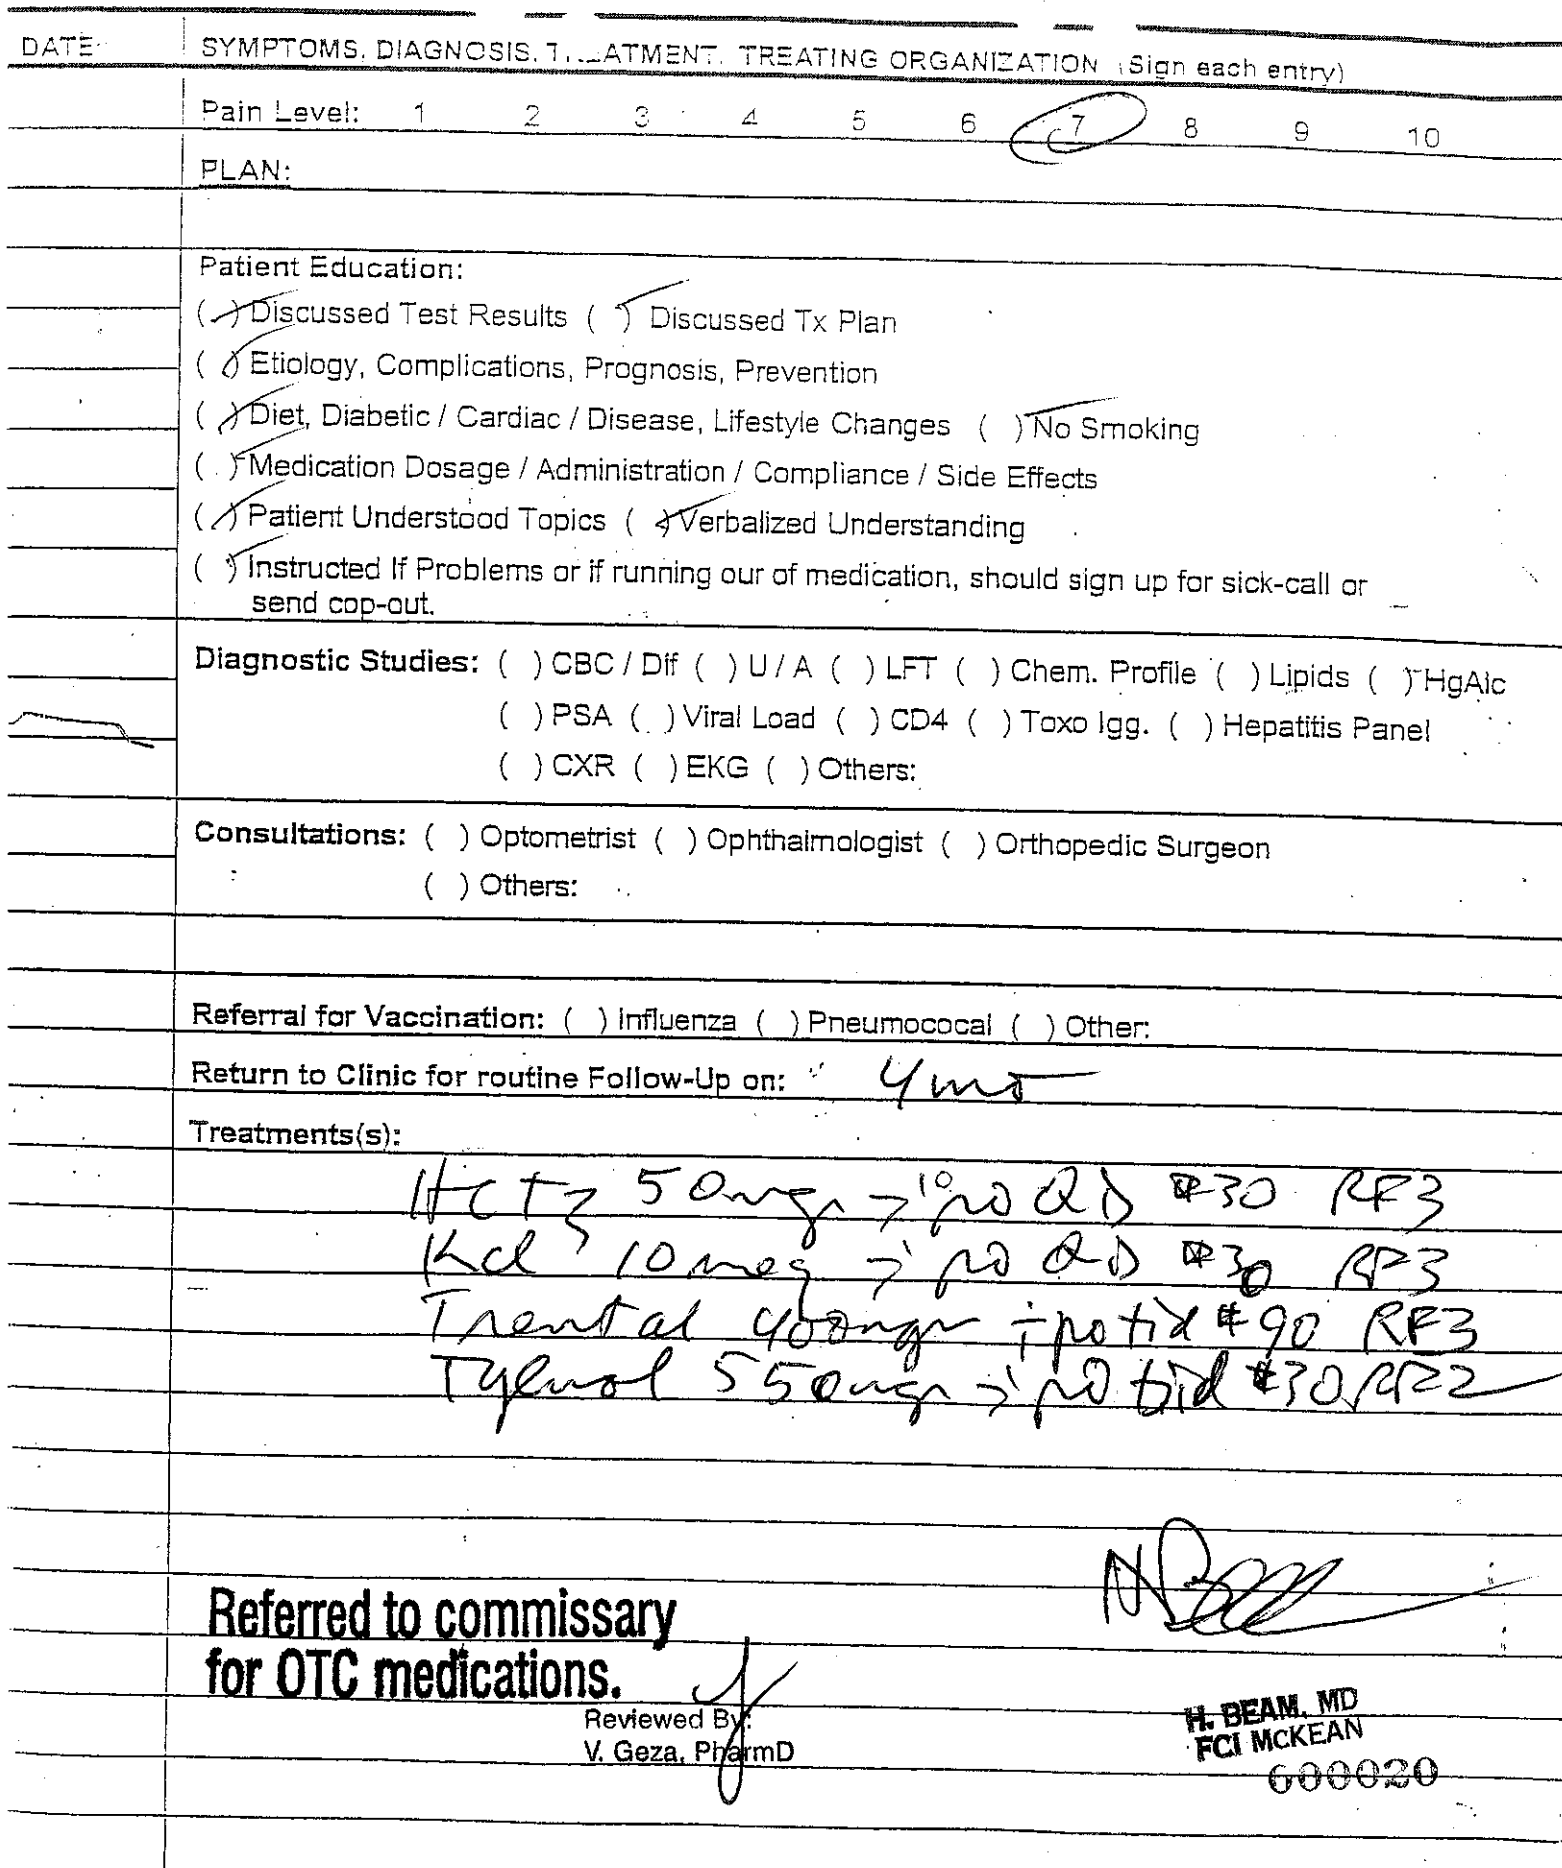 DATE SYMPTOMS, DIAGNOSIS, TREATMENT, TREATING ORGANIZATION (Sign each entry)
Pain Level: 1 2 3 4 5 6 7 8 9 10
PLAN:
Patient Education:
( ) Discussed Test Results ( ) Discussed Tx Plan
( ) Etiology, Complications, Prognosis, Prevention
( ) Diet, Diabetic / Cardiac / Disease, Lifestyle Changes ( ) No Smoking
( ) Medication Dosage / Administration / Compliance / Side Effects
( ) Patient Understood Topics ( ) Verbalized Understanding
( ) Instructed If Problems or if running our of medication, should sign up for sick-call or
send cop-out.
Diagnostic Studies: ( ) CBC / Dif ( ) U / A ( ) LFT ( ) Chem. Profile ( ) Lipids ( ) HgAlc
( ) PSA ( ) Viral Load ( ) CD4 ( ) Toxo Igg. ( ) Hepatitis Panel
( ) CXR ( ) EKG ( ) Others:
Consultations: ( ) Optometrist ( ) Ophthalmologist ( ) Orthopedic Surgeon
( ) Others:
Referral for Vaccination: ( ) Influenza ( ) Pneumococal ( ) Other:
Return to Clinic for routine Follow-Up on: 4 mo
Treatments(s):
HCTZ 50mgm po QD #30 RF3
Kcl 10 meq po QD #30 RF3
Trental 400mgm i po tid #90 RF3
Tylenol 550mgm po #30 RF2
Referred to commissary
for OTC medications.
Reviewed By:
V. Geza, PharmD
H. BEAM, MD
FCI MCKEAN
000020